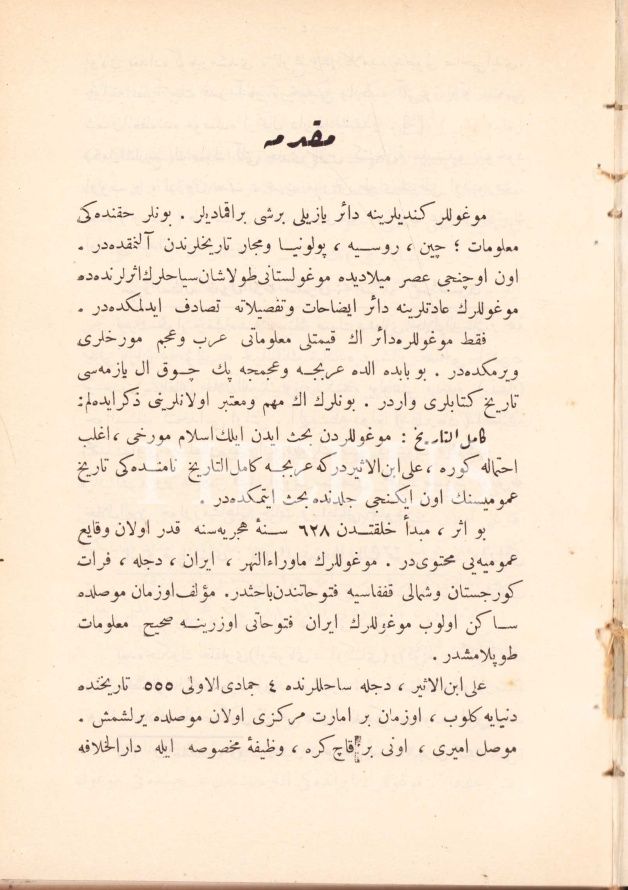 مقدمه
موغوللر كنديلرينه دائر يازيلى برشى براقماديلر . بونلر حقنده كى
معلومات ؛ چين ، روسيه ، پولونيا ومجار تاريخلرندن آلنمقده در .
اون اوچنجى عصر ميلاديده موغولستانى طولاشان سياحلرك اثرلرنده ده
موغوللرك عادتلرينه دائر ايضاحات وتفصيلاته تصادف ايدلمكده در .
فقط موغوللره دائر اك قيمتلى معلوماتى عرب وعجم مورخلرى
ويرمكده در . بو بابده الده عربجه وعجمجه پك چوق ال يازمه سى
تاريخ كتابلرى واردر . بونلرك اك مهم ومعتبر اولانلرينى ذكر ايده لم :
كامل التاريخ : موغوللردن بحث ايدن ايلك اسلام مورخى ، اغلب
احتماله كوره ، على ابن الاثيردركه عربجه كامل التاريخ نامنده كى تاريخ
عموميسنك اون ايكنجى جلدنده بحث ايتمكده در .
بو اثر ، مبدأ خلقتدن ٦٢٨ سنۀ هجريه سنه قدر اولان وقايع
عموميه يى محتوى در . موغوللرك ماوراءالنهر ، ايران ، دجله ، فرات
كورجستان وشمالى قفقاسيه فتوحاتندن باحثدر . مؤلف اوزمان موصلده
ساكن اولوب موغوللرك ايران فتوحاتى اوزرينه صحيح معلومات
طوپلامشدر .
على ابن الاثير ، دجله ساحللرنده ٤ جمادى الاولى ٥٥٥ تاريخنده
دنيايه كلوب ، اوزمان بر امارت مركزى اولان موصلده يرلشمش .
موصل اميرى ، اونى بر قاچ كره ، وظيفۀ مخصوصه ايله دارالخلافه